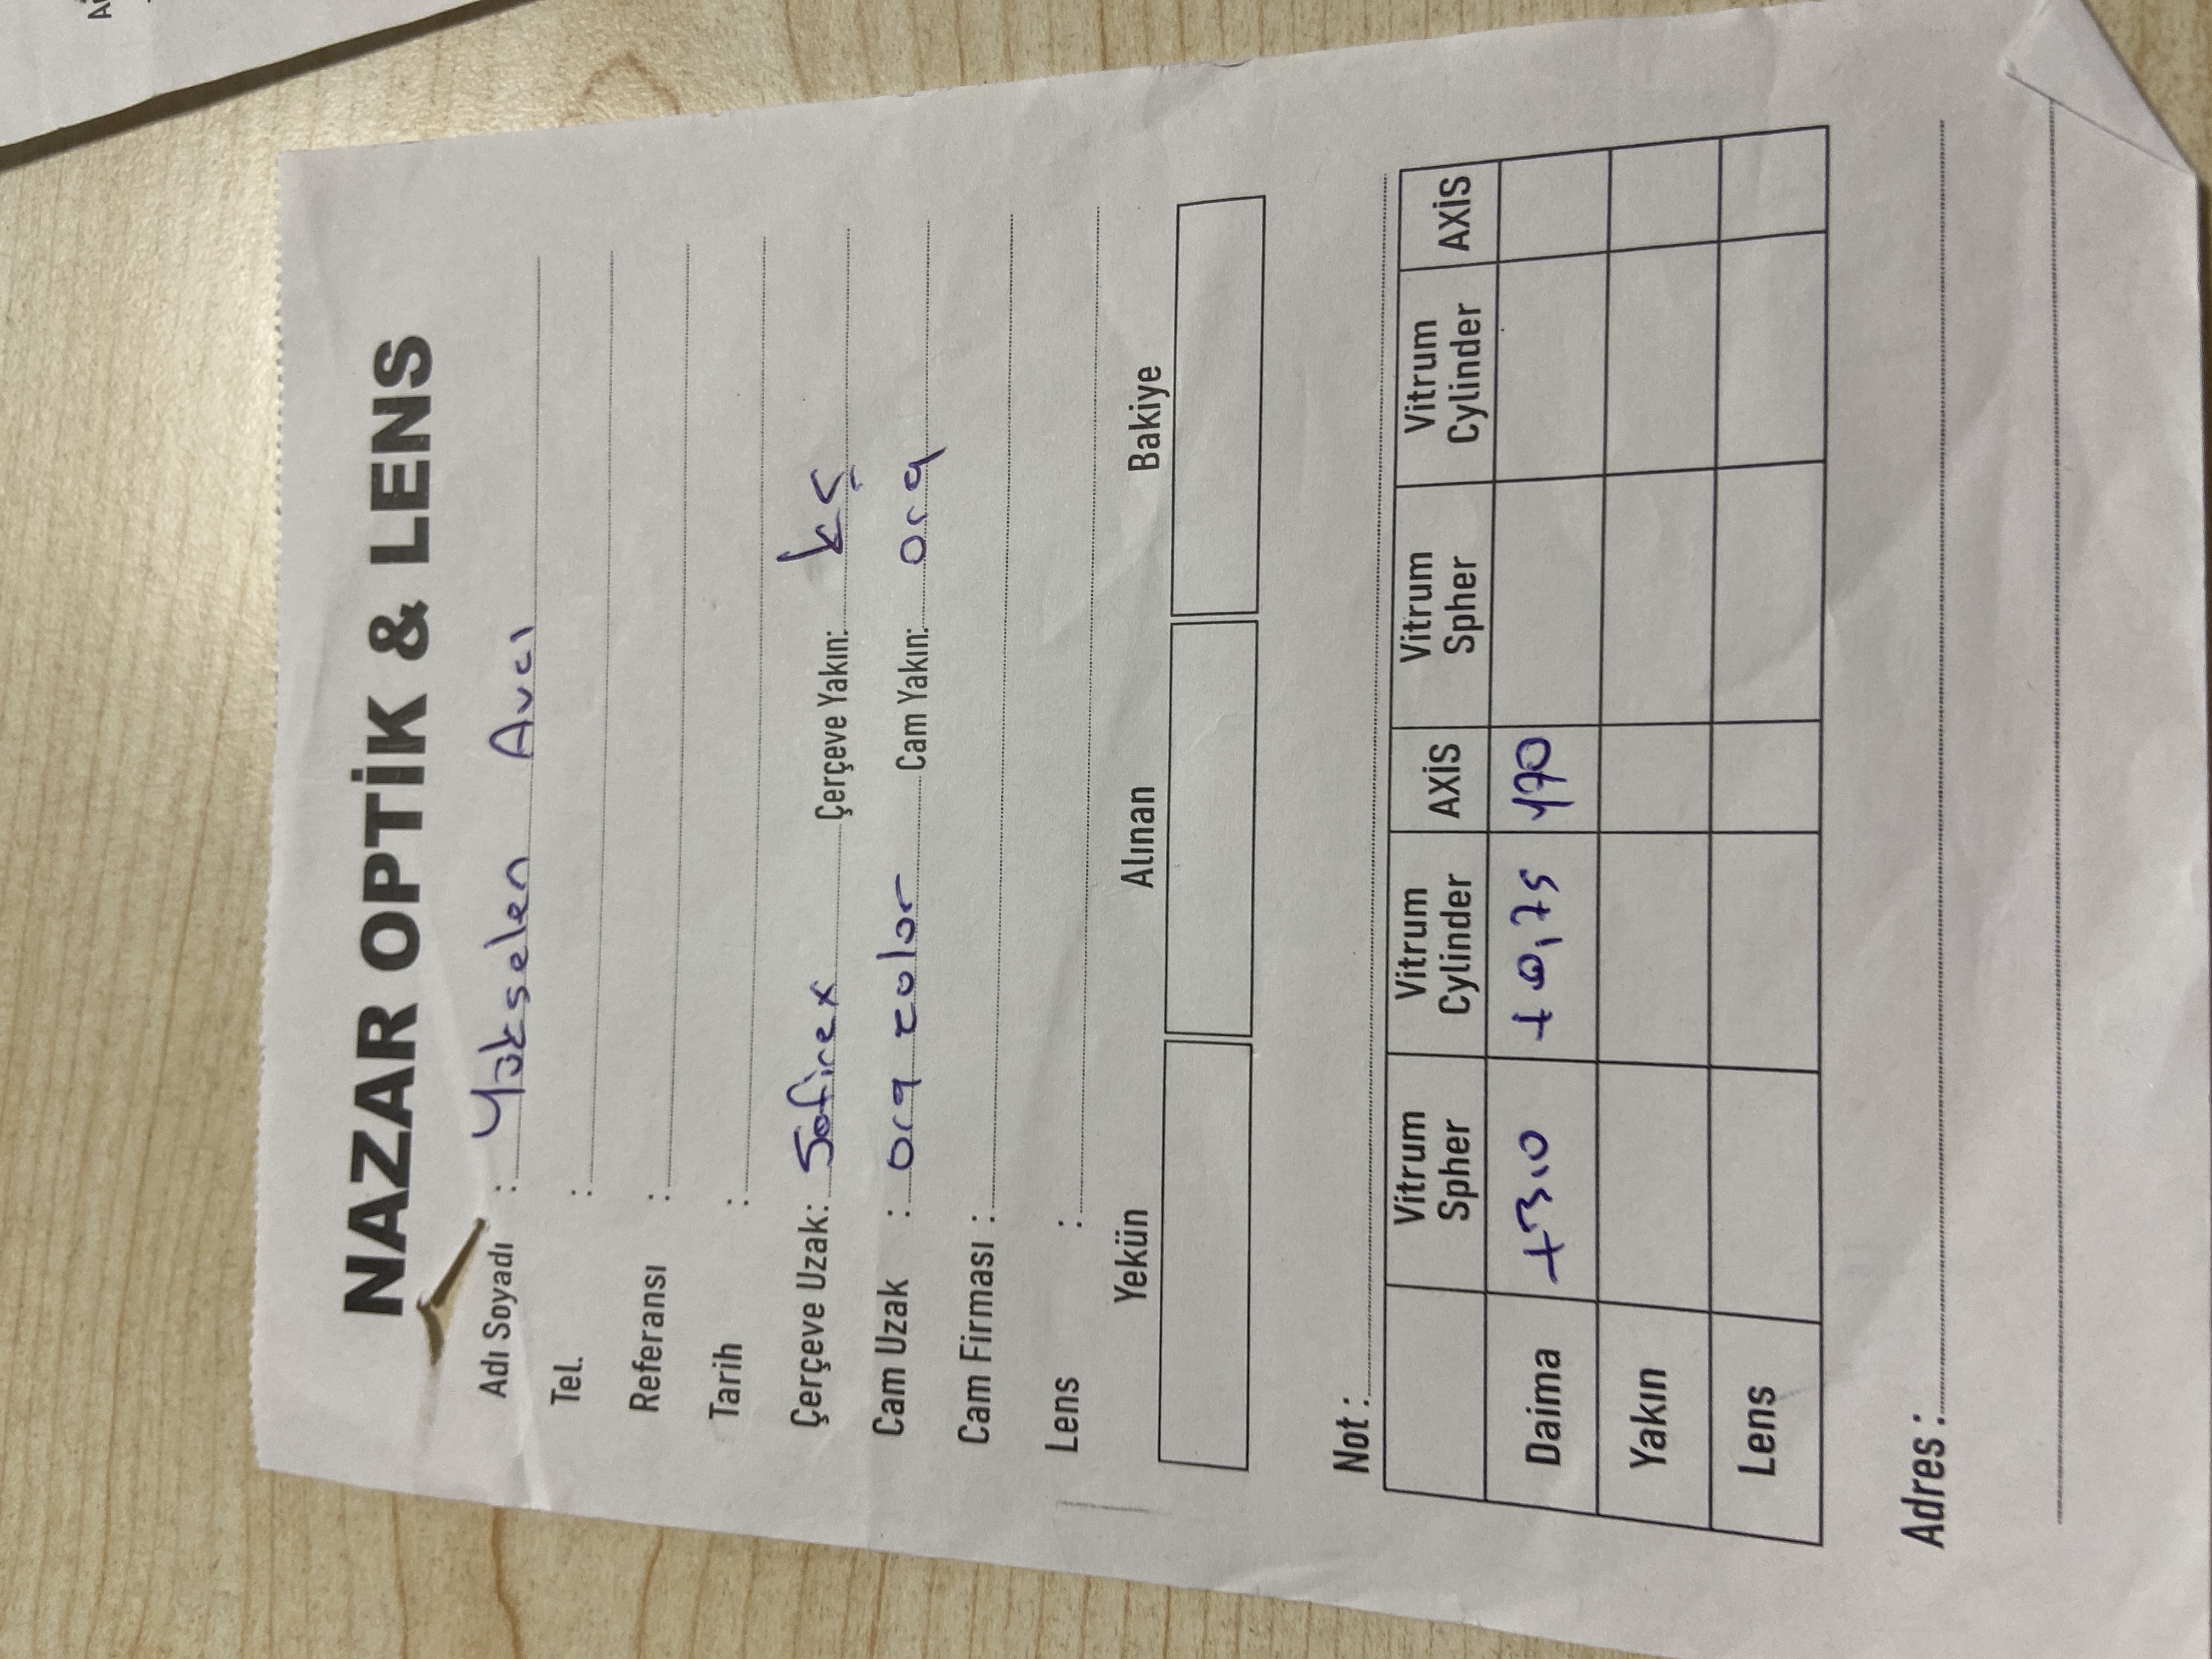 NAZAR OPTİK & LENS
Adı Soyadı : Yükselen Avcı
Tel. :
Referansı :
Tarih :
Çerçeve Uzak: Safirex Çerçeve Yakın: kç
Cam Uzak : org color Cam Yakın: org
Cam Firması :
Lens :
Yekün Alınan Bakiye
Not :
Vitrum Spher Vitrum Cylinder AXİS Vitrum Spher Vitrum Cylinder AXİS
Daima +3,0 +0,75 170
Yakın
Lens
Adres :